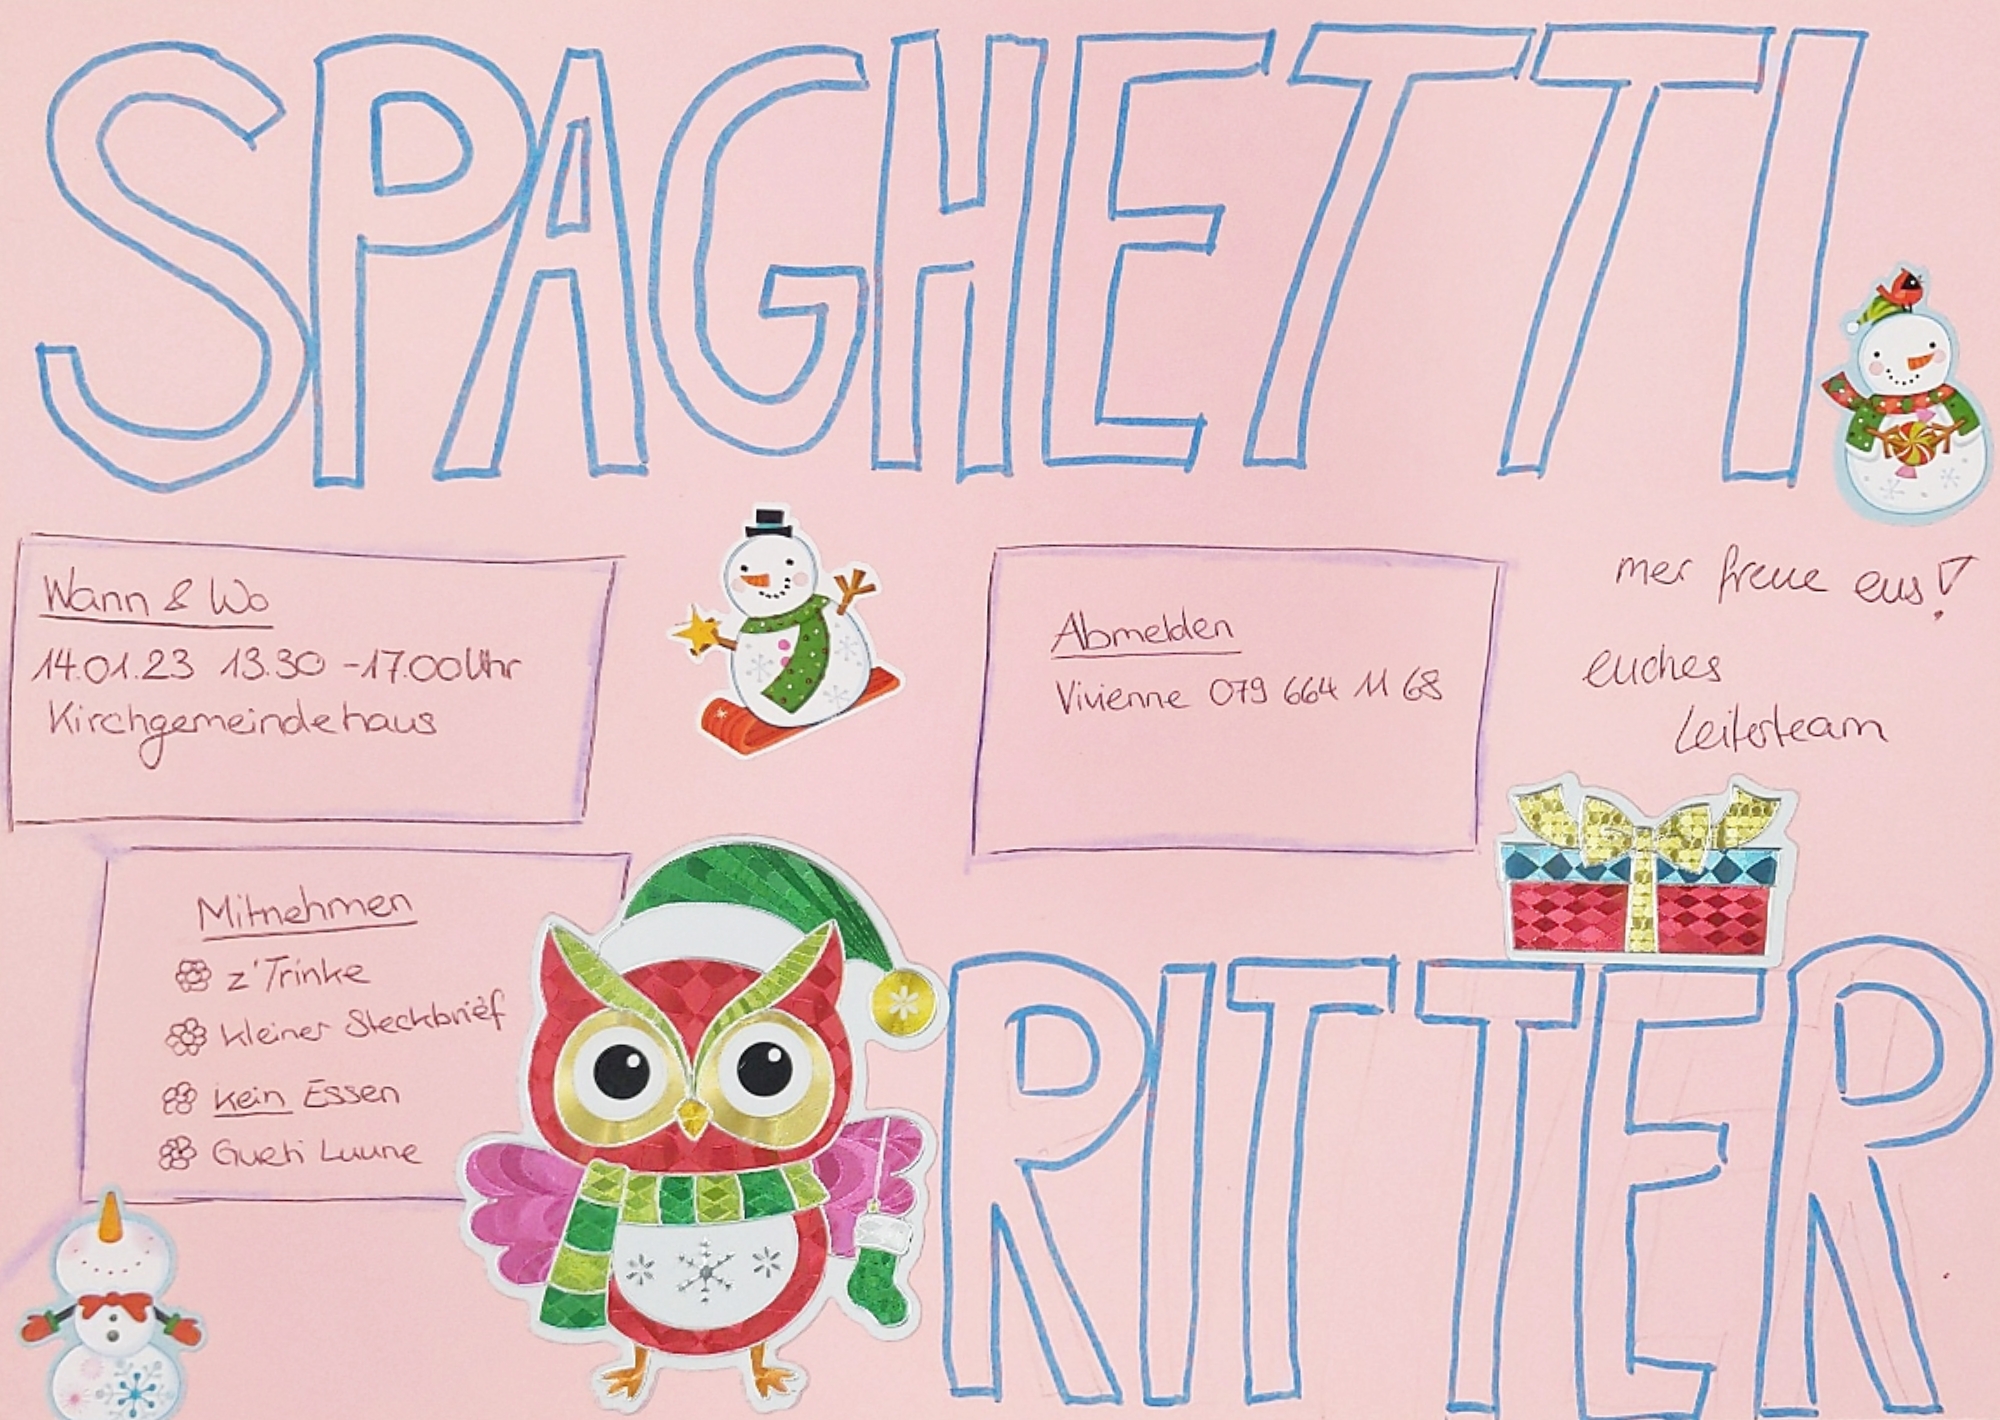 SPAGHETTI
Wann & Wo
14.01.23 13.30 - 17.00 Uhr
Kirchgemeindehaus
Abmelden
Vivienne 079 664 11 68
mer freue eus!
euches
Leiterteam
Mitnehmen
z'Trinke
kleiner Steckbrief
kein Essen
Gueti Luune
RITTER